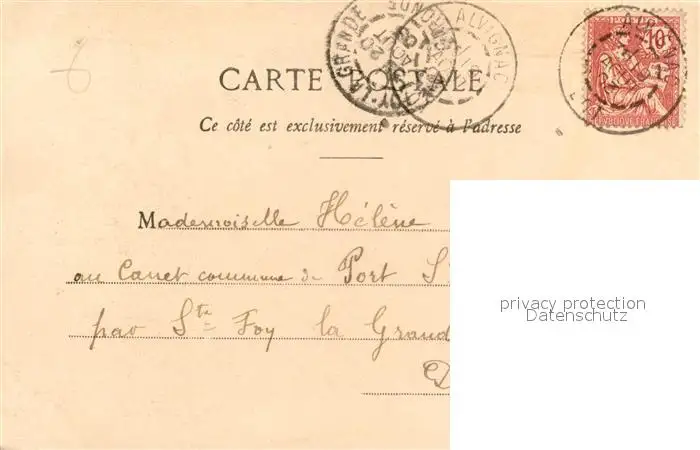 CARTE POSTALE
Ce côté est exclusivement réservé à l'adresse
Mademoiselle Hélène
au Canet commune de Port S
par Ste Foy la Grand
D
ALVIGNAC
LA GRANDE
10
REPUBLIQUE FRANÇAISE
privacy protection
Datenschutz